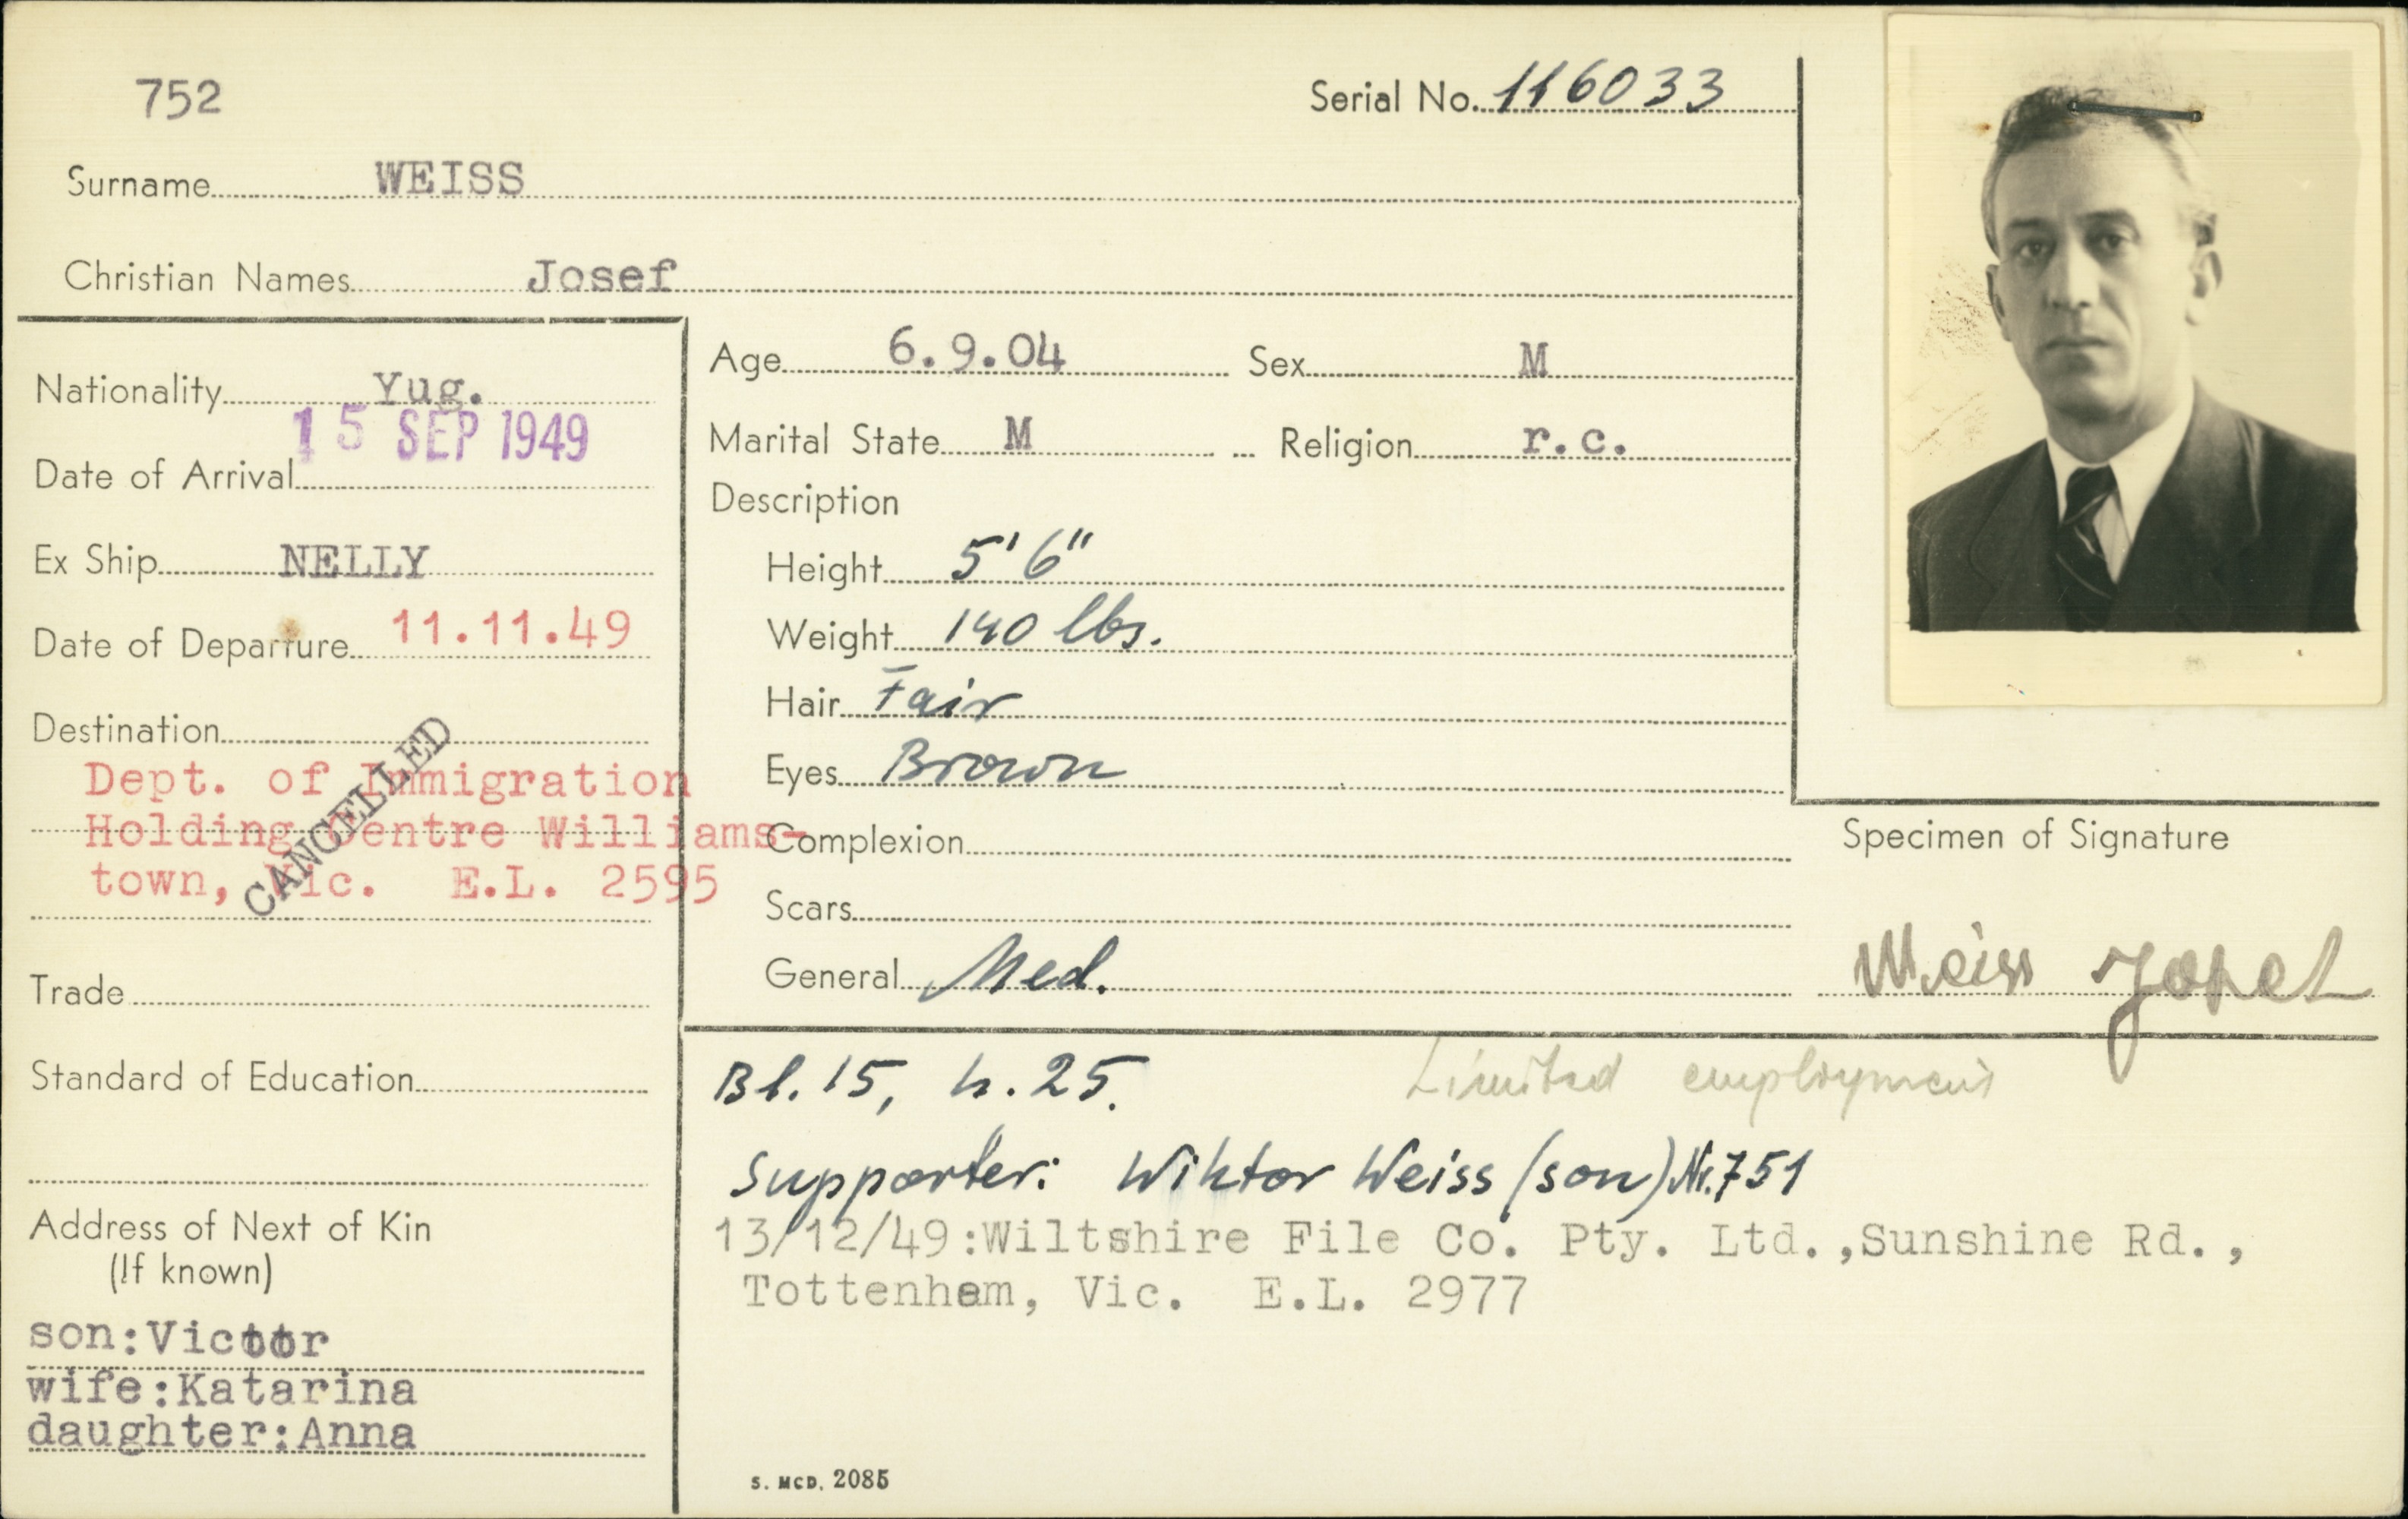 752
Serial No. 116033
Surname WEISS
Christian Names Josef
Nationality Yug.
15 SEP 1949
Date of Arrival
Ex Ship NELLY
Date of Departure 11.11.49
Destination
Dept. of Immigration
Holding Centre Williams-
town, Vic. E.L. 2595
CANCELLED
Trade
Standard of Education
Address of Next of Kin
(If known)
son:Victor
wife:Katarina
daughter:Anna
Age 6.9.04 Sex M
Marital State M Religion r.c.
Description
Height 5'6"
Weight 140 lbs.
Hair Fair
Eyes Brown
Complexion
Scars
General Med.
Specimen of Signature
Weiss Josef
Bl. 15, h. 25. Limited employment
Supporter: Wiktor Weiss (son) Nr. 751
13/12/49:Wiltshire File Co. Pty. Ltd.,Sunshine Rd.,
Tottenham, Vic. E.L. 2977
S. MCD. 2085